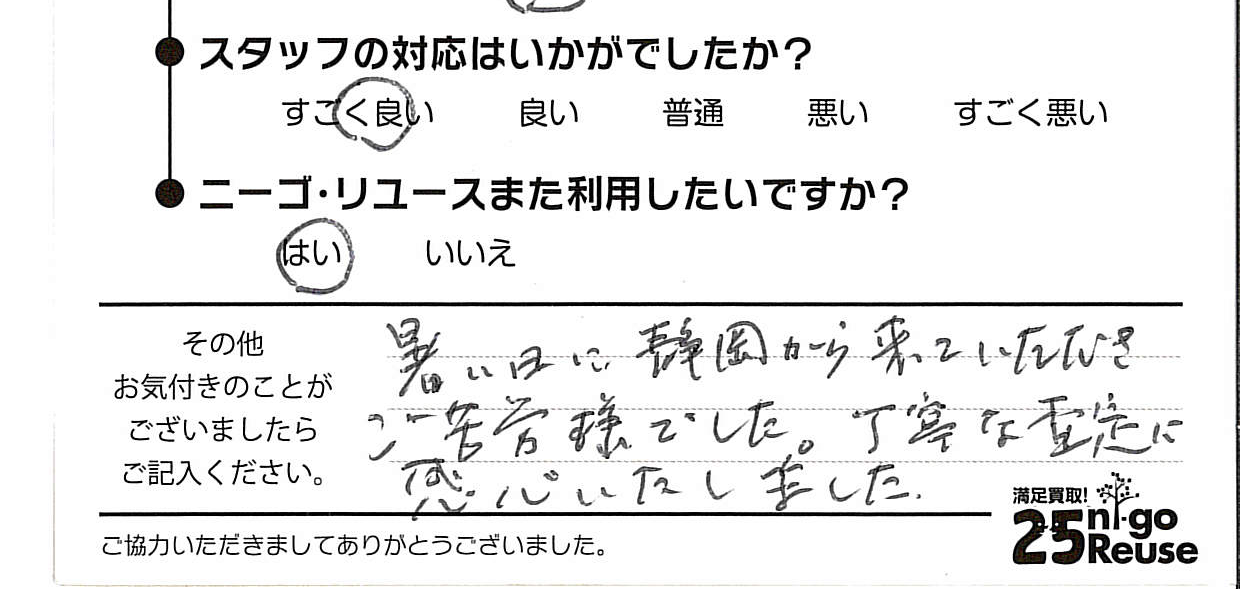 スタッフの対応はいかがでしたか？
すごく良い 良い 普通 悪い すごく悪い
ニーゴ・リユースまた利用したいですか？
はい いいえ
その他
お気付きのことが
ございましたら
ご記入ください。
暑い日に静岡から来ていただき
ご苦労様でした。丁寧な査定に
感心いたしました。
満足買取!
25 ni-go
Reuse
ご協力いただきましてありがとうございました。